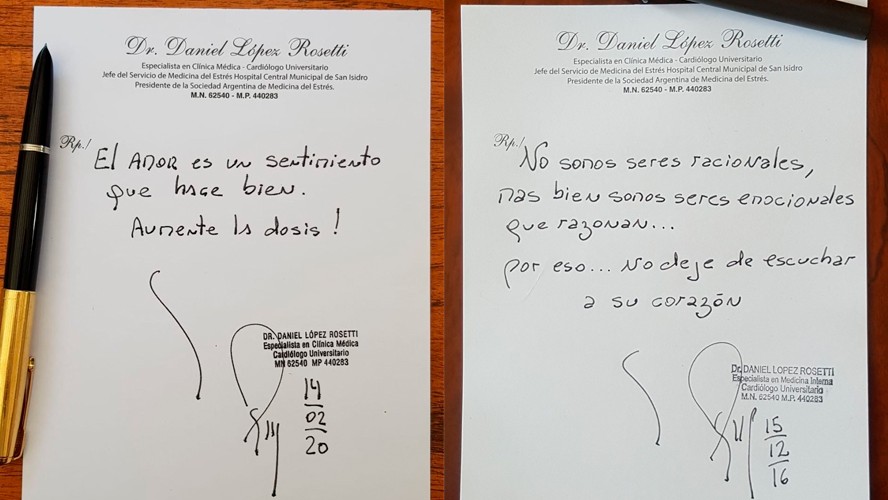 Dr. Daniel López Rosetti
Especialista en Clínica Médica - Cardiólogo Universitario
Jefe del Servicio de Medicina del Estrés Hospital Central Municipal de San Isidro
Presidente de la Sociedad Argentina de Medicina del Estrés.
M.N. 62540 - M.P. 440283
Rp./
El AMOR es un sentimiento
que hace bien.
Aumente la dosis !
DR. DANIEL LÓPEZ ROSETTI
Especialista en Clínica Médica
Cardiólogo Universitario
MN 62540 MP 440283
14
02
20
Dr. Daniel López Rosetti
Especialista en Clínica Médica - Cardiólogo Universitario
Jefe del Servicio de Medicina del Estrés Hospital Central Municipal de San Isidro
Presidente de la Sociedad Argentina de Medicina del Estrés.
M.N. 62540 - M.P. 440283
Rp./
No somos seres racionales,
mas bien somos seres emocionales
que razonan...
por eso... No deje de escuchar
a su corazón
Dr. DANIEL LOPEZ ROSETTI
Especialista en Medicina Interna
Cardiólogo Universitario
M.N. 62540 M.P. 440283
15
12
16